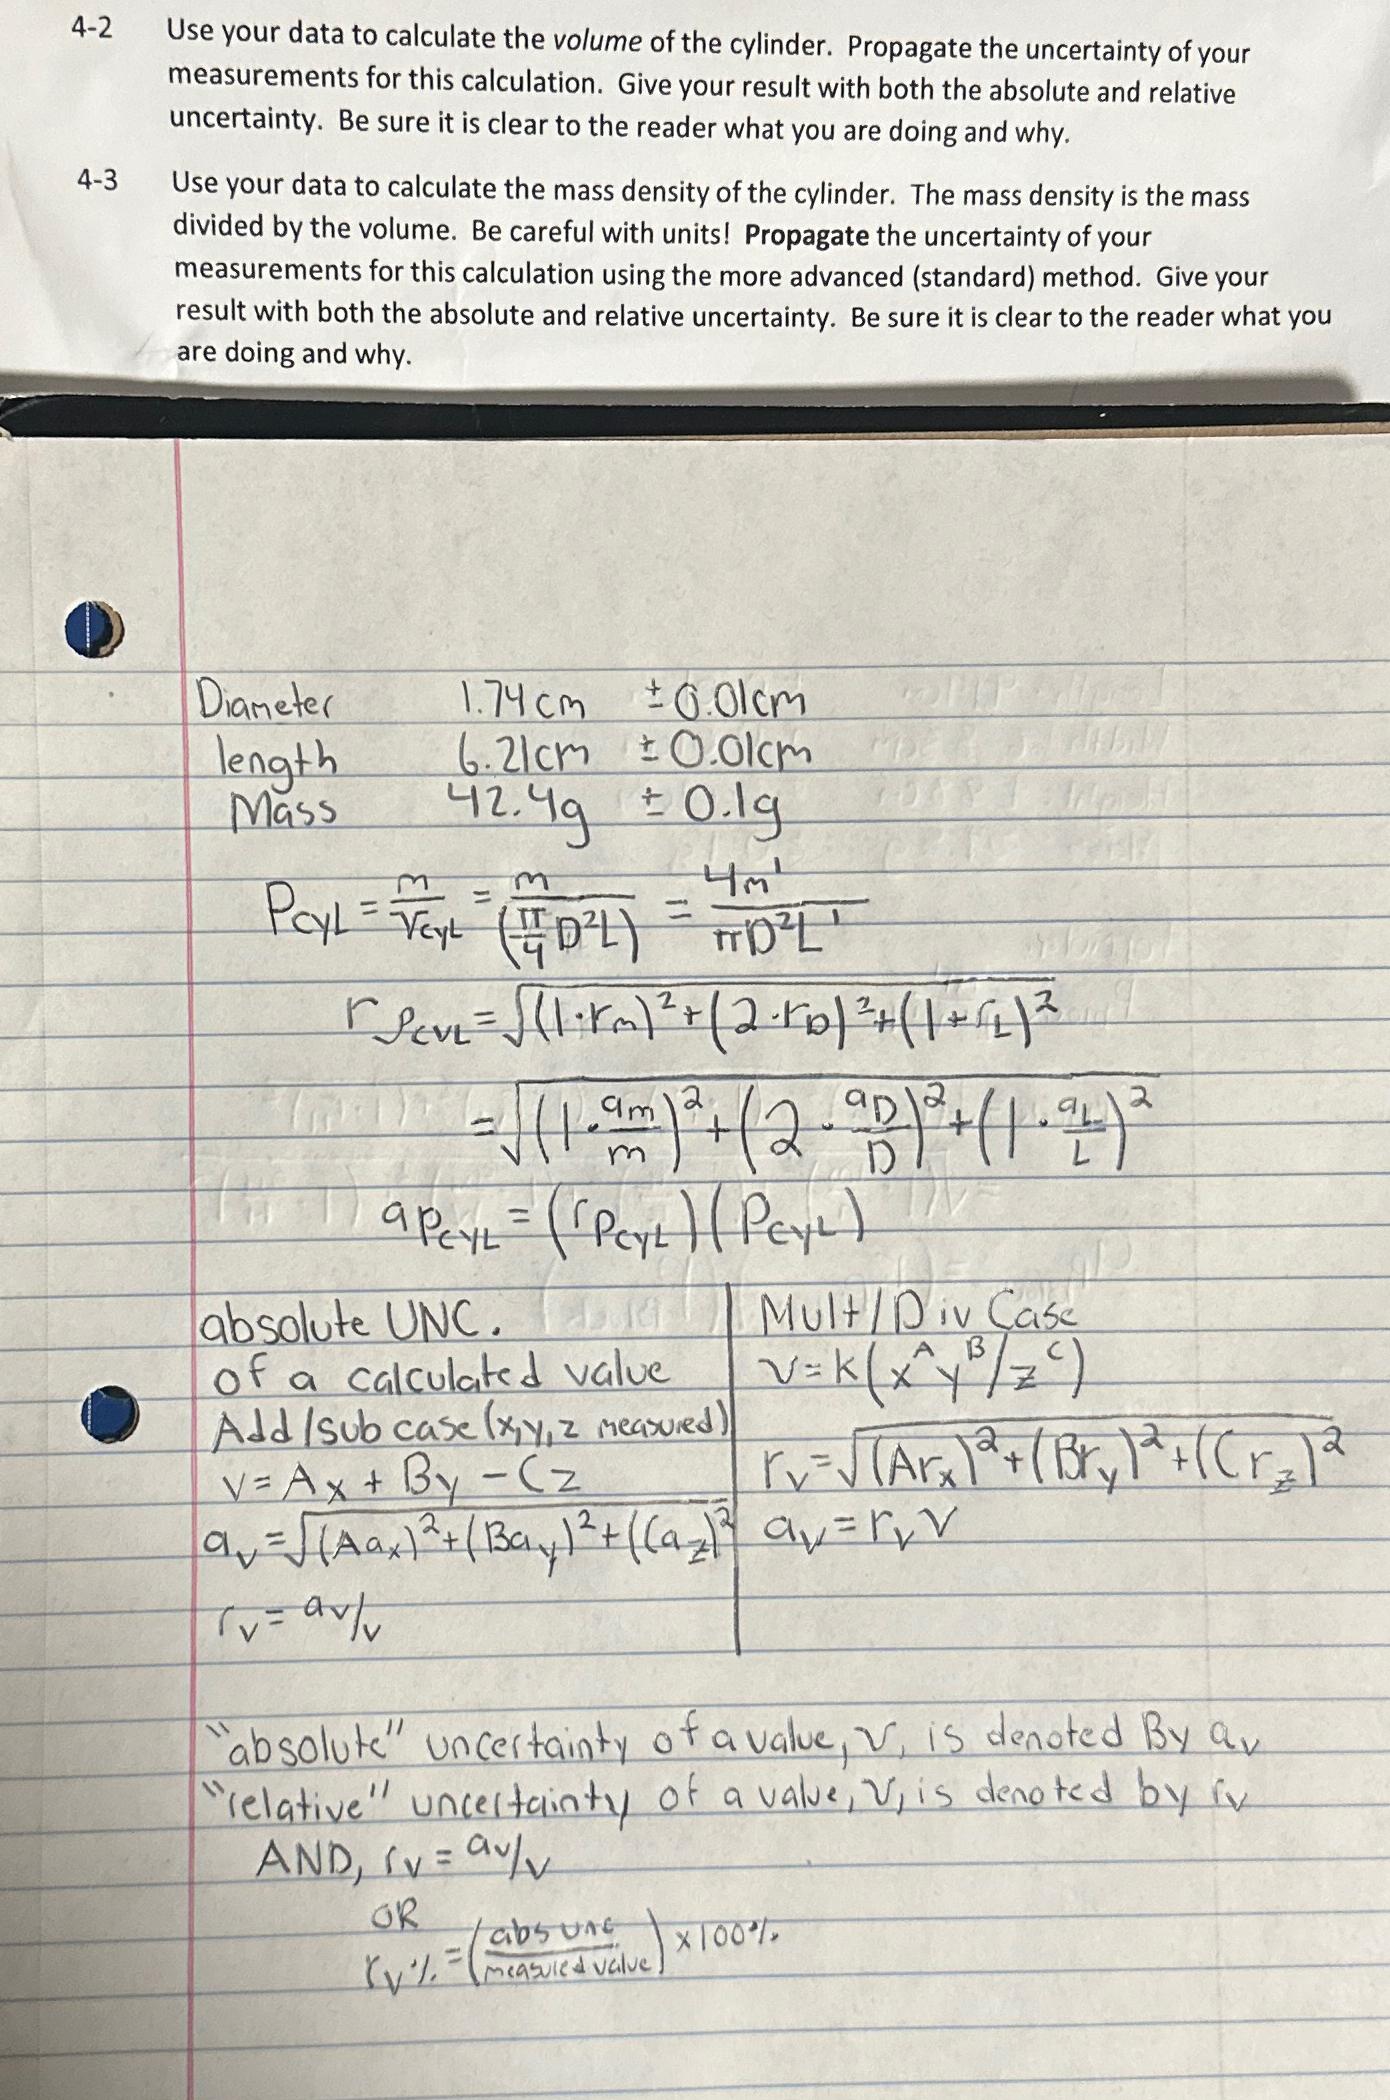 4-2 Use your data to calculate the volume of the cylinder. Propagate the uncertainty of your
measurements for this calculation. Give your result with both the absolute and relative
uncertainty. Be sure it is clear to the reader what you are doing and why.
4-3 Use your data to calculate the mass density of the cylinder. The mass density is the mass
divided by the volume. Be careful with units! Propagate the uncertainty of your
measurements for this calculation using the more advanced (standard) method. Give your
result with both the absolute and relative uncertainty. Be sure it is clear to the reader what you
are doing and why.
Diameter 1.74cm ± 0.01cm
length 6.21cm ± 0.01cm
Mass 42.4g ± 0.1g
PCYL = m/VCYL = m/(π/4 D²L) = 4m¹/πD²L¹
rρCYL = √(1·rm)² + (2·rD)² + (1+rL)²
= √(1·am/m)² + (2·aD/D)² + (1·aL/L)²
aPCYL = (rPCYL)(PCYL)
absolute UNC.
of a calculated value
Add/sub case (x,y,z measured)
V = Ax + By - Cz
av = √(Aax)² + (Bay)² + (Caz)²
rv = av/v
Mult/Div Case
V = K(x^A y^B/z^C)
rv = √(Arx)² + (Bry)² + (Crz)²
av = rvV
"absolute" uncertainty of a value, V, is denoted By av
"relative" uncertainty of a value, V, is denoted by rv
AND, rv = av/v
OR
rv% = (abs unc/measured value) x100%